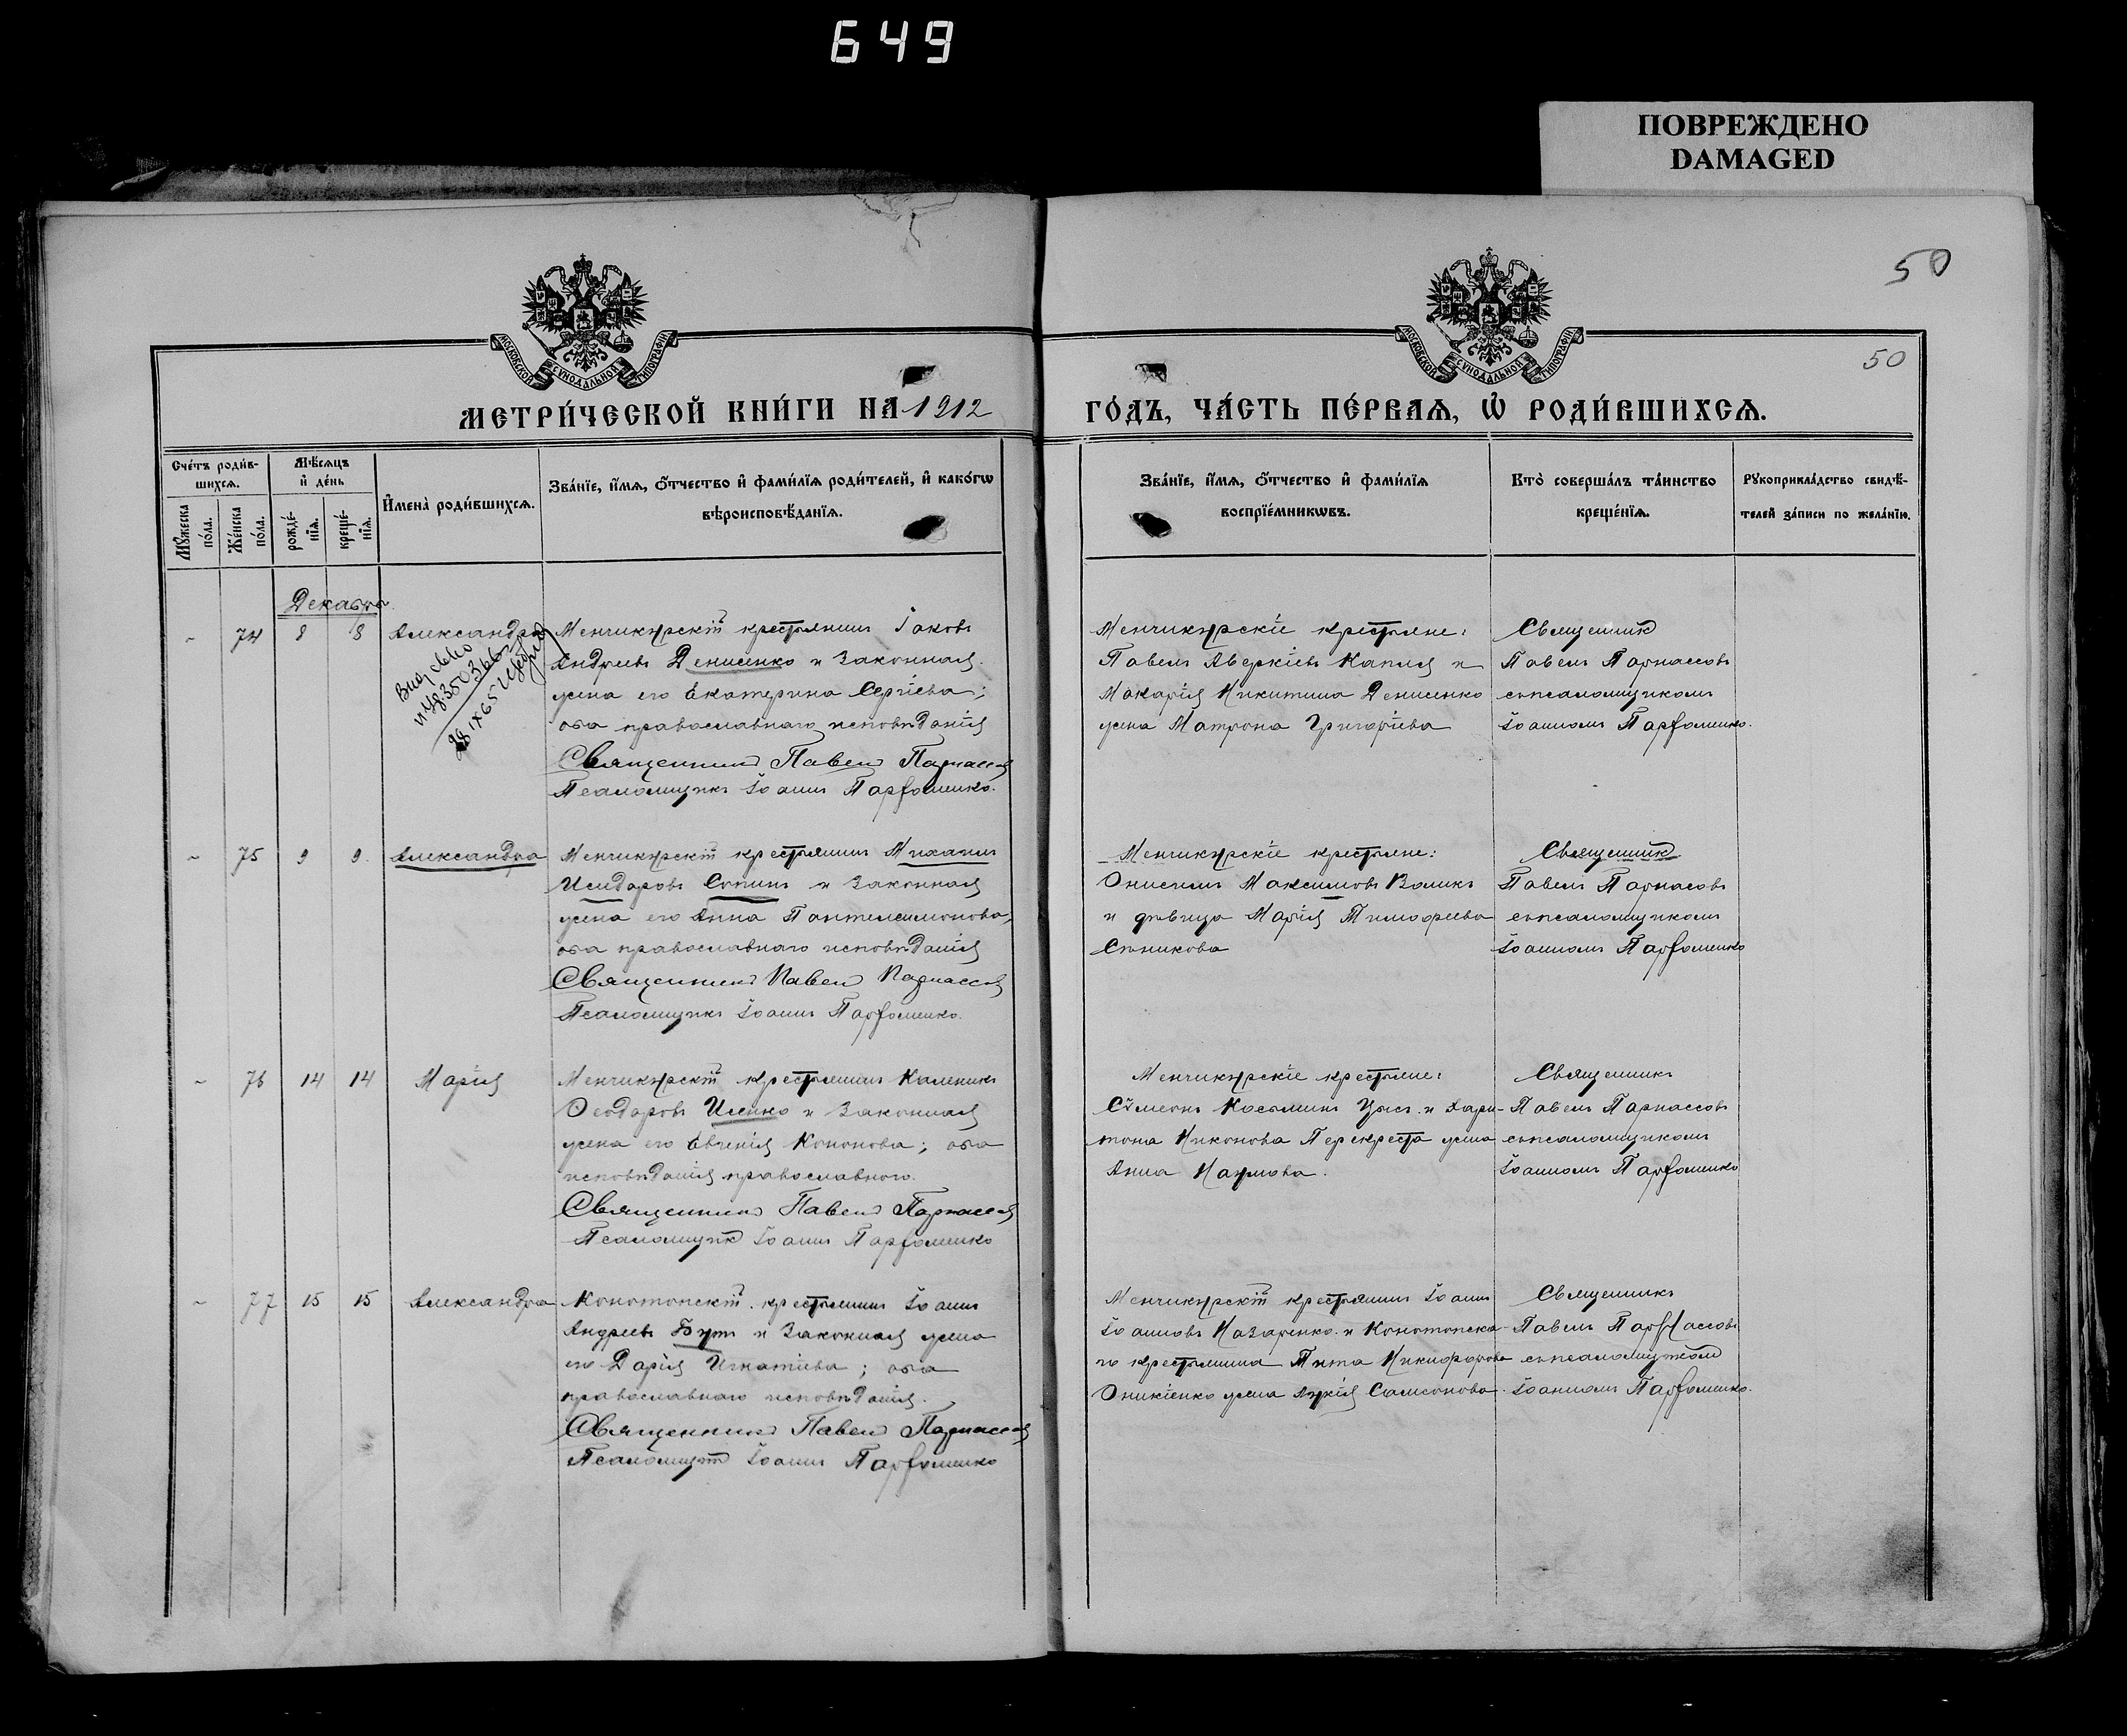 649
ПОВРЕЖДЕНО
DAMAGED
50
50
МОСКОВСКОЙ СѴНОДАЛЬНОЙ ТИПОГРАФІИ
МОСКОВСКОЙ СѴНОДАЛЬНОЙ ТИПОГРАФІИ
МЕТРИ́ЧЕСКОЙ КНИ́ГИ НА 1912
ГО́ДЪ, ЧА́СТЬ ПЕ́РВАѦ, Ѡ҆ РОДИ́ВШИХСѦ.
Сче́тъ роди́в-
шихсѧ.
Мꙋ́жеска
по́ла.
Же́нска
по́ла.
Мѣ́сѧцъ
и҆ де́нь
рожде́-
нїѧ.
креще́-
нїѧ.
И҆мена̀ роди́вшихсѧ.
Зва́нїе, и҆́мѧ, ѻ҆́тчество и҆ фами́лїѧ роди́телей, и҆ како́гѡ
вѣроисповѣ́данїѧ.
Зва́нїе, и҆́мѧ, ѻ҆́тчество и҆ фами́лїѧ
воспрїе́мникѡвъ.
Кто̀ соверша́лъ та́инство
креще́нїѧ.
Рꙋкоприкла́дство свидѣ́-
телей за́писи по жела́нїю.
Декабрь
- 74 8 8 Александра
Менчикурскій крестьянинъ Іаковъ
Андреевъ Денисенко и законная
жена его Екатерина Сергіева;
оба православнаго исповѣданія
Священникъ Павелъ Парнассовъ
Псаломщикъ Іоаннъ Парфоменко.
Менчикурскіе крестьяне:
Павелъ Аверкіевъ Капля и
Макарія Никитина Денисенко
жена Матрона Григоріева
Священникъ
Павелъ Парнассовъ
съ псаломщикомъ
Іоанномъ Парфоменко.
- 75 9 9 Александра
Менчикурскій крестьянинъ Михаилъ
Исидоровъ Сопинъ и законная
жена его Анна Пантелеимонова,
оба православнаго исповѣданія
Священникъ Павелъ Парнассовъ
Псаломщикъ Іоаннъ Парфоменко.
Менчикурскіе крестьяне:
Онисимъ Максимовъ Воликъ
и дѣвица Марія Тимофеева
Сѣникова
Священникъ
Павелъ Парнасовъ
съ псаломщикомъ
Іоанномъ Парфоменко
- 76 14 14 Марія
Менчикурскій крестьянинъ Калиникъ
Ѳеодоровъ Иленко и законная
жена его Евгенія Кононова; оба
исповѣданія православного.
Священникъ Павелъ Парнассовъ
Псаломщикъ Іоаннъ Парфоменко
Менчикурскіе крестьяне:
Сѵмеонъ Косьминъ и Хари-
тона Никонова Перекреста жена
Анна Наумова.
Священникъ
Павелъ Парнассовъ
съ псаломщикомъ
Іоанномъ Парфоменко
- 77 15 15 Александра
Конотопскій крестьянинъ Іоаннъ
Андреевъ Бутъ и законная жена
его Дарія Игнатіева; оба
православнаго исповѣданія.
Священникъ Павелъ Парнассовъ
Псаломщикъ Іоаннъ Парфоменко
Менчикурскій крестьянинъ Іоаннъ
Іоанновъ Назаренко и Конотопска-
го крестьянина Тита Никифорова
Оникіенко жена Лукія Самсонова.
Священникъ
Павелъ Парнассовъ
съ псаломщикомъ
Іоанномъ Парфоменко.